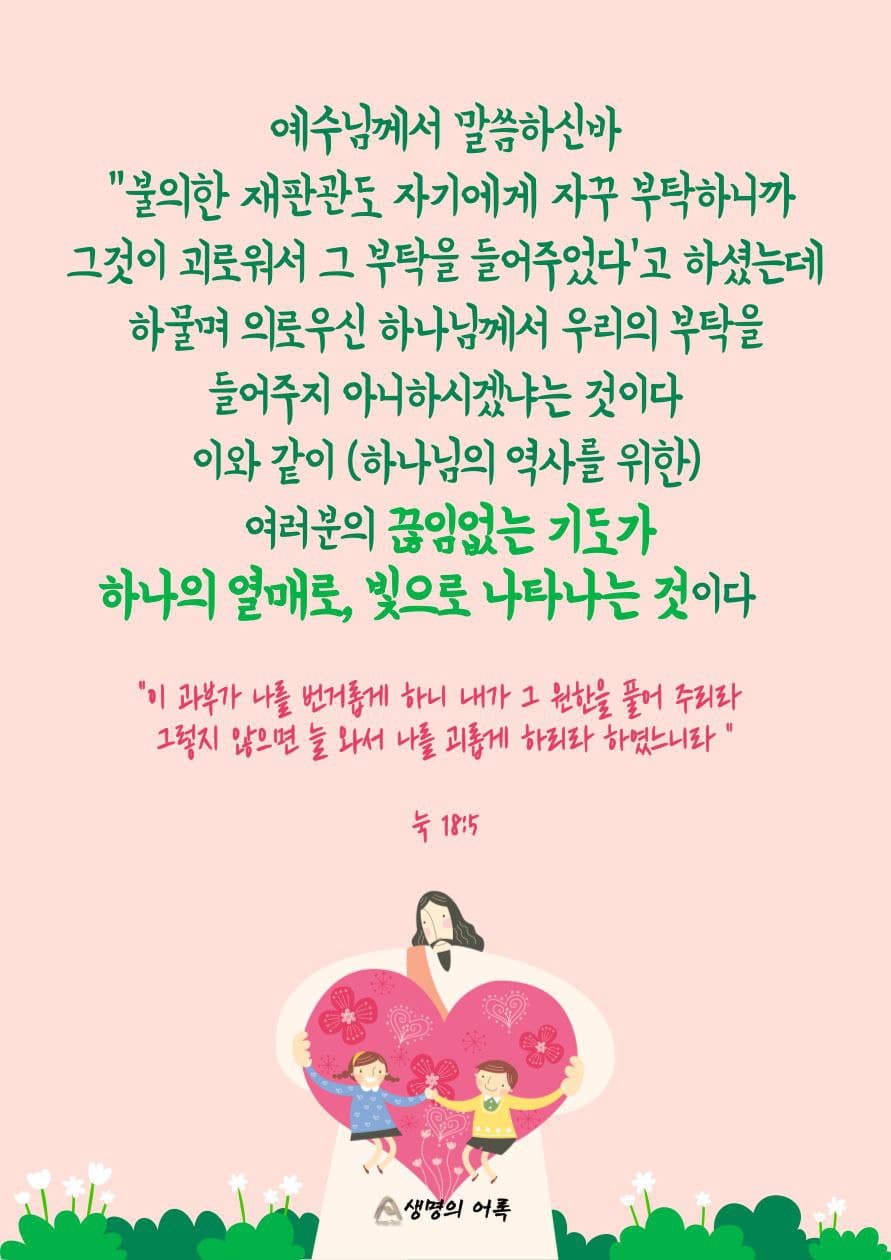 예수님께서 말씀하신바
"불의한 재판관도 자기에게 자꾸 부탁하니까
그것이 괴로워서 그 부탁을 들어주었다'고 하셨는데
하물며 의로우신 하나님께서 우리의 부탁을
들어주지 아니하시겠냐는 것이다
이와 같이 (하나님의 역사를 위한)
여러분의 끊임없는 기도가
하나의 열매로, 빛으로 나타나는 것이다
"이 과부가 나를 번거롭게 하니 내가 그 원한을 풀어 주리라
그렇지 않으면 늘 와서 나를 괴롭게 하리라 하였느니라 "
눅 18:5
생명의 어록